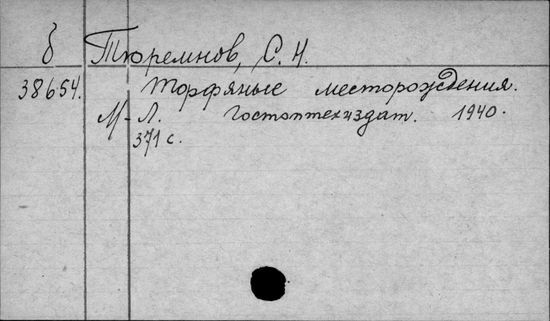 б Тюремнов, С. Н.
38654. Торфяные месторождения.
М-Л. Гостоптехиздат. 1940.
371 с.